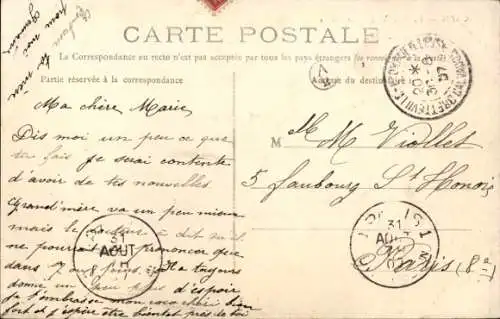 CARTE POSTALE
La Correspondance au recto n'est pas acceptée par tous les pays étrangers
Partie réservée à la correspondance
du destinataire
Ma chère Marie
Dis moi un peu ce que
tu fais je serai contente
d'avoir de tes nouvelles
Grand'mère va un peu mieux
mais le docteur a dit qu'il
ne pourrait se prononcer que
dans 7 ou 8 jours. Il a toujours
donné un peu d'espoir
je t'embrasse mon coco chéri bien
fort et j'espère être bientôt près de toi
M M. Viollet
5 faubourg St Honoré
Paris (8e)
31
AOUT
PARIS
31
20 *
31 -8
07